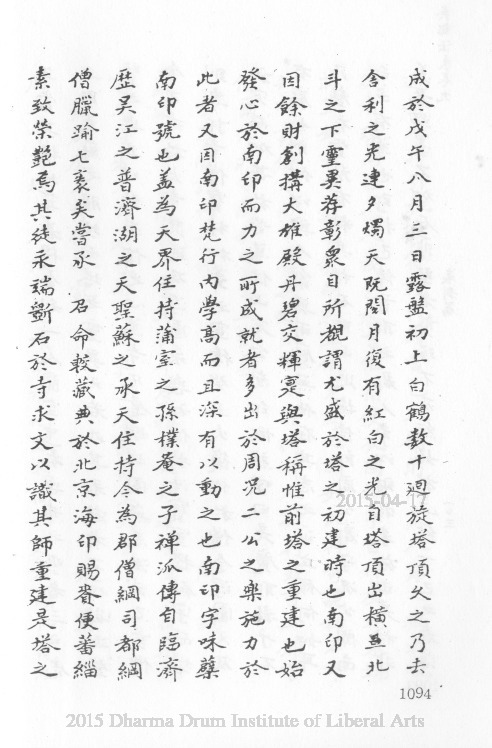 成於戊午八月三日露盤初上白鶴數十廻旋塔頂久之乃去
舍利之光連夕燭天既閱月復有紅白之光自塔頂出橫亘北
斗之下靈異荐彰衆目所覩謂尤盛於塔之初建時也南印又
因餘財創搆大雄殿丹碧交輝寔與塔稱惟前塔之重建也始
發心於南印而力之所成就者多出於周况二公之樂施力於
此者又因南印梵行内學髙而且深有以動之也南印字味蘗
南印號也盖為天界住持蒲室之孫樸菴之子禅派傳自臨濟
歷吴江之普濟湖之天聖蘇之承天住持今為郡僧綱司都綱
僧臘踰七袠矣嘗承 召命較藏典於北京海印賜賚便蕃緇
素致榮艶焉其徒永瑞斵石於寺求文以識其師重建是塔之
1094
2015-04-17
2015 Dharma Drum Institute of Liberal Arts